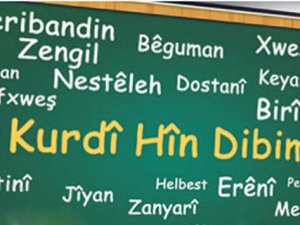 eribandin
Bêguman
Xwes
Zengil
an
Nestêleh
Dostanî
Keya
fxweş
Birî
Kurdî Hîn Dibim
tinî
Jîyan
Helbest
Erênî
Pe
Zanyarî
Me